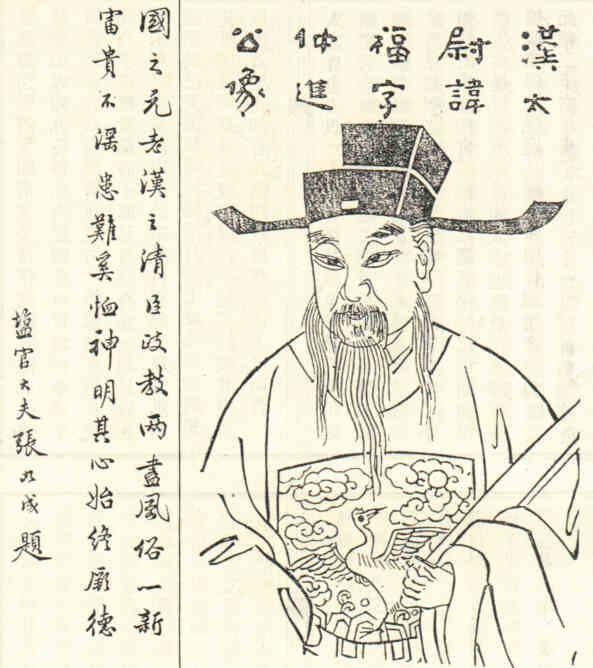 漢太
尉諱
福字
仲進
公像
國之元老漢之清臣政教两盡風俗一新
富貴不滛患難奚恤神明其心始終厥德
塩官大夫張九成題